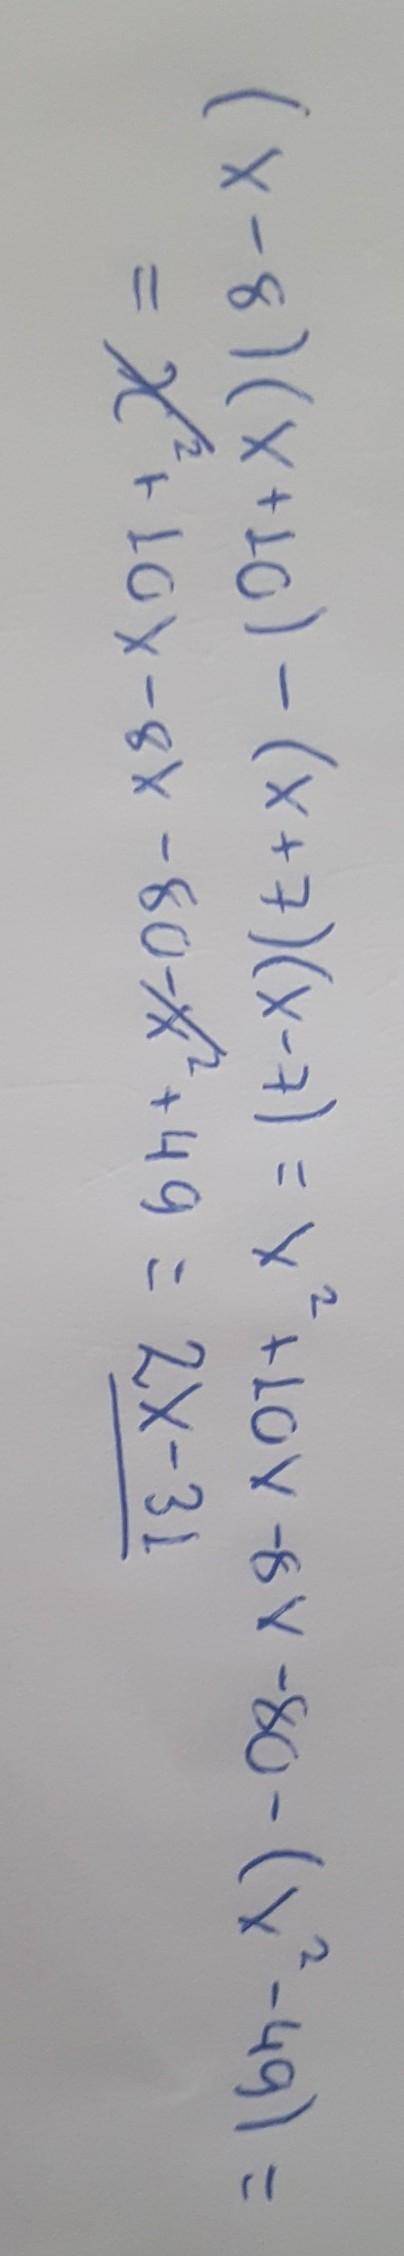 (x-8)(x+10)-(x+7)(x-7)=x²+10x-8x-80-(x²-49)=
=x²+10x-8x-80-x²+49=2x-31